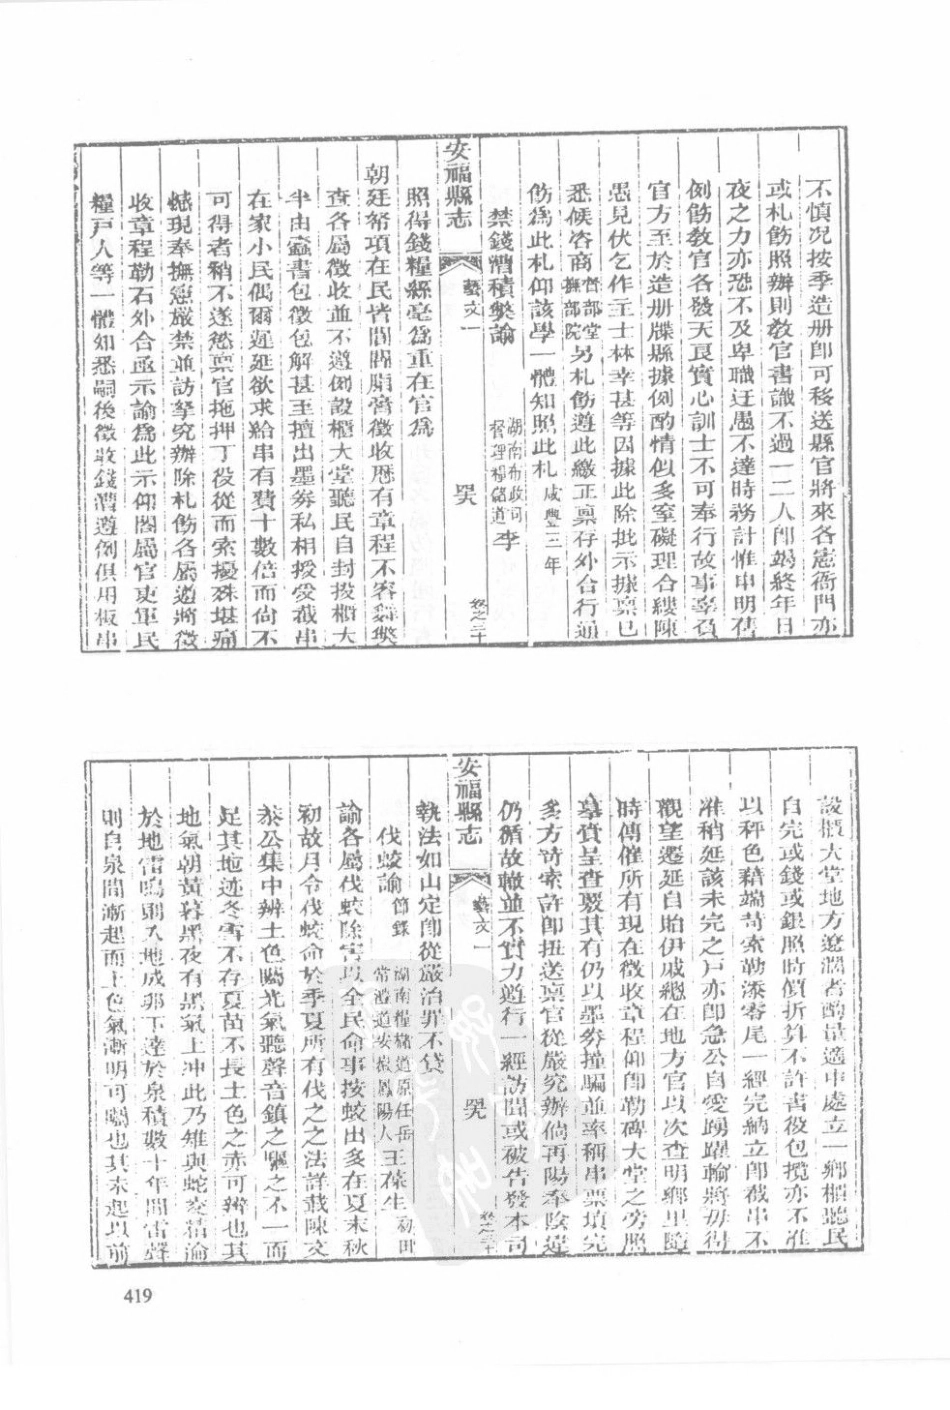 不慎况按季造册卽可移送縣官將來各憲衙門亦
或札飭照辦則敎官書識不過一二人卽竭終年日
夜之力亦恐不及卑職迂愚不達時務計惟申明舊
例飭敎官各發天良實心訓士不可奉行故事辜負
官方至於造册牒縣據例酌情似多窒礙理合縷陳
愚見伏乞作主士林幸甚等因據此除批示據稟已
悉候咨商督部堂撫部院另札飭遵此繳正稟存外合行通
飭爲此札仰該學一體知照此札咸豐三年
禁錢漕積獘諭 湖南布政司督理糧儲道李
照得錢糧絲毫爲重在官爲
安福縣志 藝文一 哭 卷之三十
朝廷帑項在民皆閭閻脂膏徵收歴有章程不容舞獘
查各屬徵收並不遵例設櫃大堂聽民自封投櫃大
半由蠹書包徵包解甚至擅出墨券私相授受截串
在家小民偶爾遲延欲求給串有費十數倍而尙不
可得者稍不遂慾稟官拖押丁役從而索擾殊堪痛
憾現奉撫憲嚴禁並訪拏究辦除札飭各屬遵將徵
收章程勒石外合亟示諭爲此示仰閤屬官吏軍民
糧戸人等一體知悉嗣後徵收錢漕遵例俱用板串
設櫃大堂地方遼濶者酌量適中處立一鄉櫃聽民
自完或錢或銀照時價折算不許書役包攬亦不准
以秤色藉端苛索勒添零尾一經完納立卽截串不
准稍延該未完之戸亦卽急公自愛踴躍輸將毋得
觀望遷延自貽伊戚總在地方官以次查明鄉里隨
時傳催所有現在徵收章程仰卽勒碑大堂之旁照
摹賫呈查覈其有仍以墨券撞騙並率稱串票塡完
多方苛索許卽扭送稟官從嚴究辦倘再陽奉陰違
仍循故轍並不實力遵行一經訪聞或被告發本司
執法如山定卽從嚴治罪不貸
安福縣志 藝文一 哭 卷之三十
伐蛟諭節錄 湖南糧儲道原任岳常澧道安徽鳳陽人王葆生
諭各屬伐蛟除害以全民命事按蛟出多在夏末秋
初故月令伐蛟命於季夏所有伐之之法詳載陳文
恭公集中辨土色矚光氣聽聲音鎮之驅之不一而
足其地迹冬雪不存夏苗不長土色之赤可辨也其
地氣朝黃暮黑夜有黑氣上冲此乃雉與蛇交精淪
於地雷鳴則入地成卵下達於泉積數十年聞雷聲
則自泉間漸起而上色氣漸明可矚也其未起以前
419